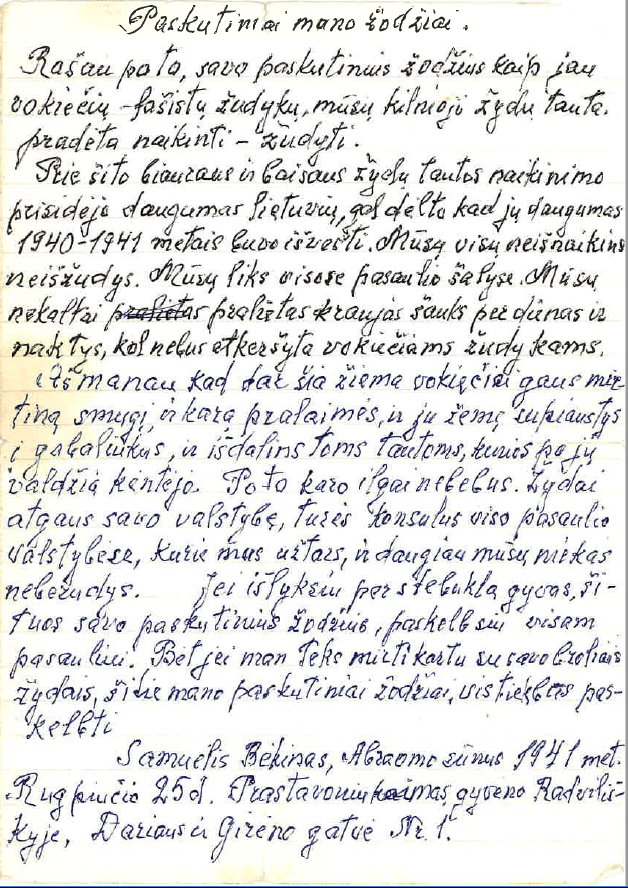 Paskutiniai mano žodžiai.
Rašau poto, savo paskutinius žodžius kaip jau
vokiečių - fašistų žudykų, mūsų kilnioji žydų tauta.
pradėta naikinti - žudyti.
Prie šito biauraus ir baisaus žydų tautos naikinimo
prisidėjo daugumas lietuvių, gal dėlto kad jų daugumas
1940-1941 metais buvo išvežti. Mūsų visų neišnaikins
neišžudys. Mūsų liks visose pasaulio šalyse. Mūsų
nekaltai pralietas kraujas šauks per dienas ir
naktys, kol nebus atkeršyta vokiečiams žudykams.
Išmanau kad dar šia žiema vokiečiai gaus mir-
tiną smūgį, ir karą pralaimės, ir jų žemę supiaustys
į gabaliukus, ir išdalins toms tautoms, kurios po jų
valdžia kentėjo. Poto karo ilgai nebebus. Žydai
atgaus savo valstybę, turės konsulus viso pasaulio
valstybėse, kurie mus užtars, ir daugiau mūsų niekas
nebežudys. Jei išlyksiu per stebukla gyvas, ši-
tuos savo paskutinius žodžius, paskelbsiu visam
pasauliui. Bet jei man teks mirti kartu su savo broliais
žydais, šitie mano paskutiniai žodžiai, vistiek bus pas-
kelbti
Samuelis Bekinas, Abraomo sūnus 1941 met.
Rugpiučio 25d. Prastavonių kaimas, gyveno Radviliš-
kyje, Dariaus ir Girėno gatvė Nr. 1.